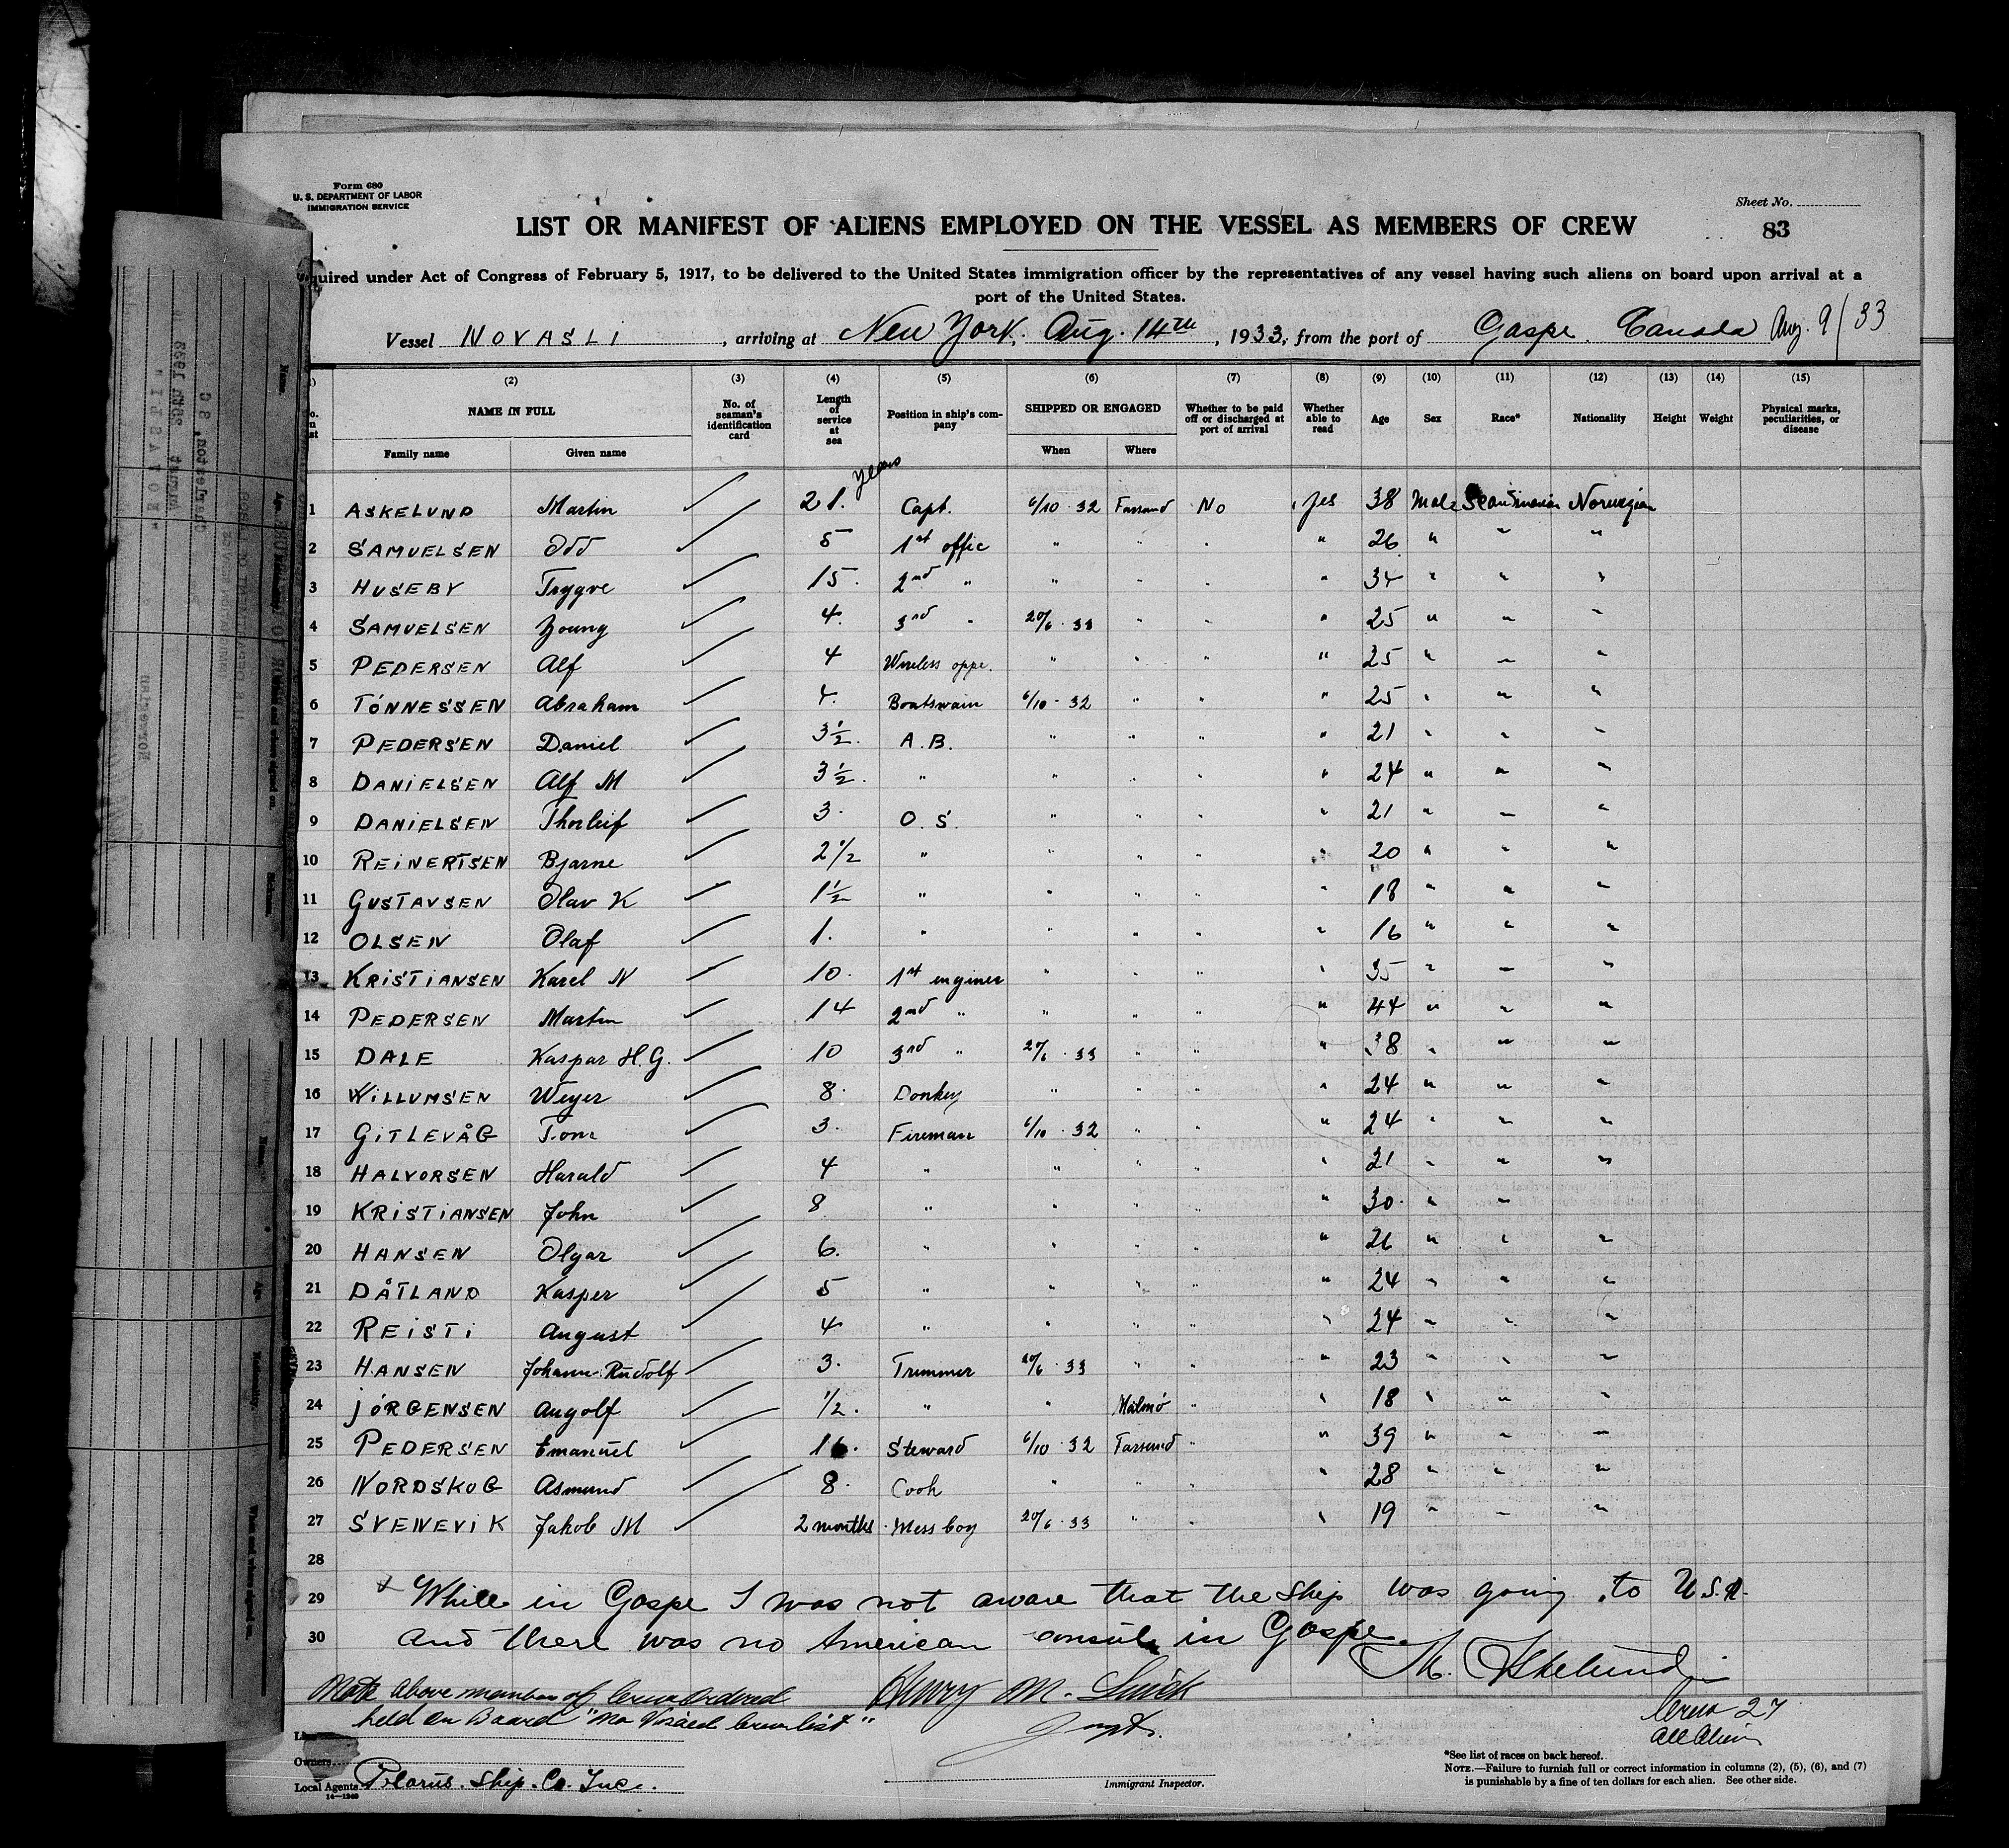 Form 680
U. S. DEPARTMENT OF LABOR
IMMIGRATION SERVICE
Sheet No.
83
LIST OR MANIFEST OF ALIENS EMPLOYED ON THE VESSEL AS MEMBERS OF CREW
quired under Act of Congress of February 5, 1917, to be delivered to the United States immigration officer by the representatives of any vessel having such aliens on board upon arrival at a
port of the United States.
Vessel NOVASLI, arriving at New York, Aug. 14th, 1933, from the port of Gaspe. Canada Aug. 9/33
(2) (3) (4) (5) (6) (7) (8) (9) (10) (11) (12) (13) (14) (15)
NAME IN FULL No. of seaman's identification card Length of service at sea Position in ship's company SHIPPED OR ENGAGED Whether to be paid off or discharged at port of arrival Whether able to read Age Sex Race* Nationality Height Weight Physical marks, peculiarities, or disease
Family name Given name When Where
years
1 ASKELUND Martin 21. Capt. 6/10 · 32 Farsund No yes 38 Male Scandinavian Norwegian
2 SAMUELSEN Odd 5 1st offic " " " " 26 " " "
3 HUSEBY Trygve 15. 2nd " " " " " 34 " " "
4 SAMUELSEN Young 4. 3rd " 20/6 · 33 " " " 25 " " "
5 PEDERSEN Alf 4 Wireless oppe. " " " " 25 " " "
6 TÓNNESSEN Abraham 4. Boatswain 6/10 · 32 " " " 25 " " "
7 PEDERSEN Daniel 3½. A.B. " " " " 21 " " "
8 DANIELSEN Alf M 3½. " " " " " 24 " " "
9 DANIELSEN Thorleif 3. O.S. " " " " 21 " " "
10 REINERTSEN Bjarne 2½ " " " " " 20 " " "
11 GUSTAVSEN Olav K 1½ " " " " " 18 " " "
12 OLSEN Olaf 1. " " " " " 16 " " "
13 KRISTIANSEN Karel N 10. 1st enginer " " " " 35 " " "
14 PEDERSEN Martin 14 2nd " " " " " 44 " " "
15 DALE Kaspar H.G. 10 3rd " 20/6 · 33 " " " 38 " " "
16 WILLUMSEN Weyer 8. Donkey " " " " 24 " " "
17 GITLEVÅG Tom 3. Fireman 6/10 · 32 " " " 24 " " "
18 HALVORSEN Harald 4 " " " " " 21 " " "
19 KRISTIANSEN John 8 " " " " " 30 " "
20 HANSEN Olgar 6. " " " " " 26 " " "
21 DÅTLAND Kasper 5 " " " " " 24 " " "
22 REISTI August 4 " " " " " 24 " " "
23 HANSEN Johann Rudolf 3. Trimmer 20/6 · 33 " " " 23 " " "
24 JÓRGENSEN Angolf 1/2. " " Malmó " " 18 " " "
25 PEDERSEN Emanuel 16. Steward 6/10 · 32 Farsund " " 39 " " "
26 NORDSKOG Asmund 8. Cook " " " " 28 " " "
27 SVENEVIK Jakob M 2 months. Mess boy 20/6 · 33 " " " 19 " " "
28
29 While in Gaspe I was not aware that the ship was going to U.S.A.
30 and there was no American consul in Gaspe.
M. Askelund
Note above members of Crew ordered
held on Board "No Visaed Crew list"
Henry M.
Crew 27
All Aliens
Owners
Local Agents Polarus. Ship. Co. Inc.
Immigrant Inspector.
14—1240
*See list of races on back hereof.
NOTE.—Failure to furnish full or correct information in columns (2), (5), (6), and (7)
is punishable by a fine of ten dollars for each alien. See other side.